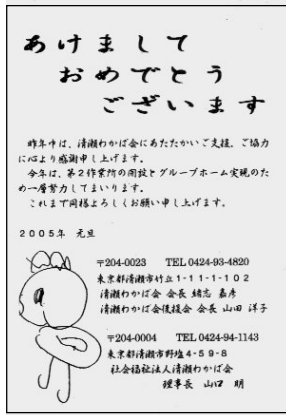 あけまして
おめでとう
ございます
昨年中は、清瀬わかば会にあたたかいご支援、ご協力
に心より感謝申し上げます。
今年は、第2作業所の開設とグループホーム実現のた
め一層努力してまいります。
これまで同様よろしくお願い申し上げます。
2005年 元旦
〒204-0023 TEL 0424-93-4820
東京都清瀬市竹丘1-11-1-102
清瀬わかば会 会長 緒志 嘉彦
清瀬わかば会後援会 会長 山田 洋子
〒204-0004 TEL 0424-94-1143
東京都清瀬市野塩4-59-8
社会福祉法人清瀬わかば会
理事長 山口 明